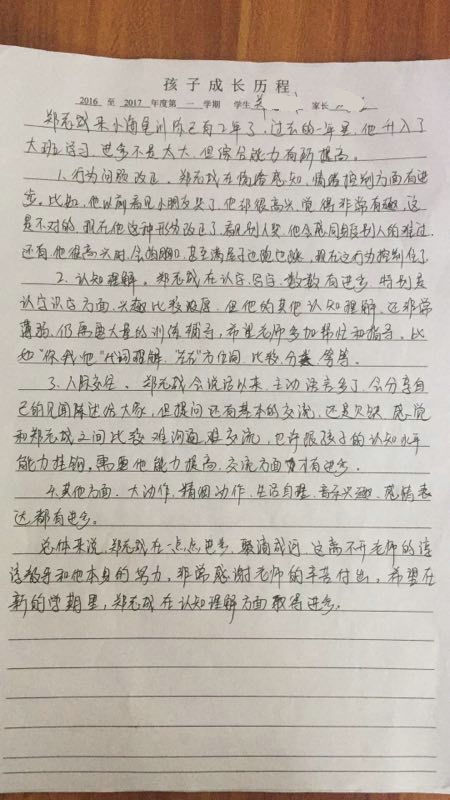 孩子成长历程
2016 至 2017 年度第 一 学期 学生 郑 家长
郑元成来小海星训练已有2年了，过去的一年里，他升入了
大班学习，进步不是太大，但综合能力有所提高。
1.行为问题改正。郑元成在情绪感知，情绪控制方面有进
步。比如，他以前看见小朋友哭了，他却很高兴，觉得非常有趣，这
是不对的，现在他这种行为改正了，看见别人哭，他会感同身受别人的难过，
还有，他很高兴时，会 甚至满屋子也跑也跳，现在这行为控制住了。
2.认知理解。郑元成在认字，写字，数数有进步，特别是
认字识字方面，兴趣比较浓厚，但他的其他认知理解，还非常
薄弱，仍需要大量的训练辅导，希望老师多加帮忙和指导。比
如"你、我、他"代词理解，"左右"方位词，比较，分类等等。
3.人际交往。郑元成会说话以来，主动语言多了，会分享自
己的见闻陈述给大家，但提问还有基本的交流，还是欠缺，感觉
和郑元成之间比较难沟通，难交流，也许跟孩子的认知水平
能力挂钩，需要他能力提高，交流方面才有进步。
4.其他方面，大动作，精细动作，生活自理，音乐兴趣，感情表
达都有进步。
总体来说，郑元成在一点点进步，聚滴成河，这离不开老师的谆
谆教导和他本身的努力，非常感谢老师的辛苦付出，希望在
新的学期里，郑元成在认知理解方面取得进步。